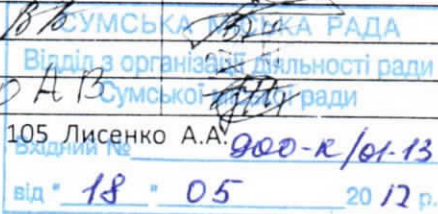 ВВ СУМСЬКА МІСЬКА РАДА
Відділ з організації діяльності ради
О А В Сумської міської ради
105 Лисенко А.А.
Вхідний № 900-К/01-13
від "18" 05 2012 р.